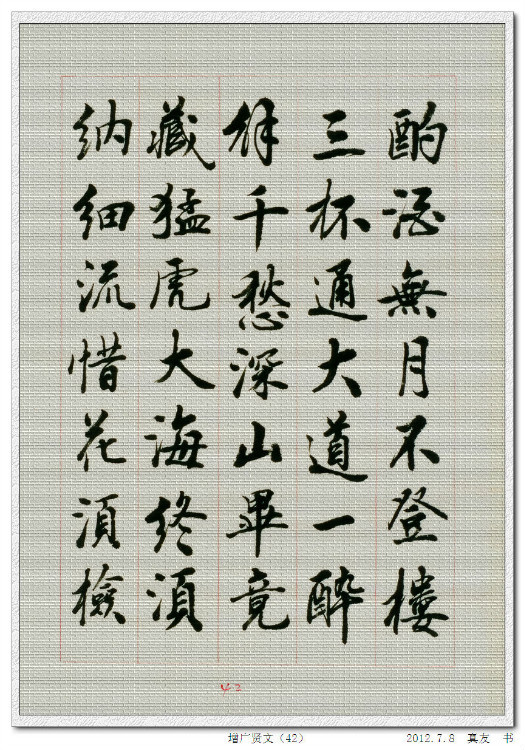 酌酒無月不登樓
三杯通大道一醉
解千愁深山畢竟
藏猛虎大海終須
納細流惜花須檢
42
增广贤文（42）
2012.7.8 真友 书